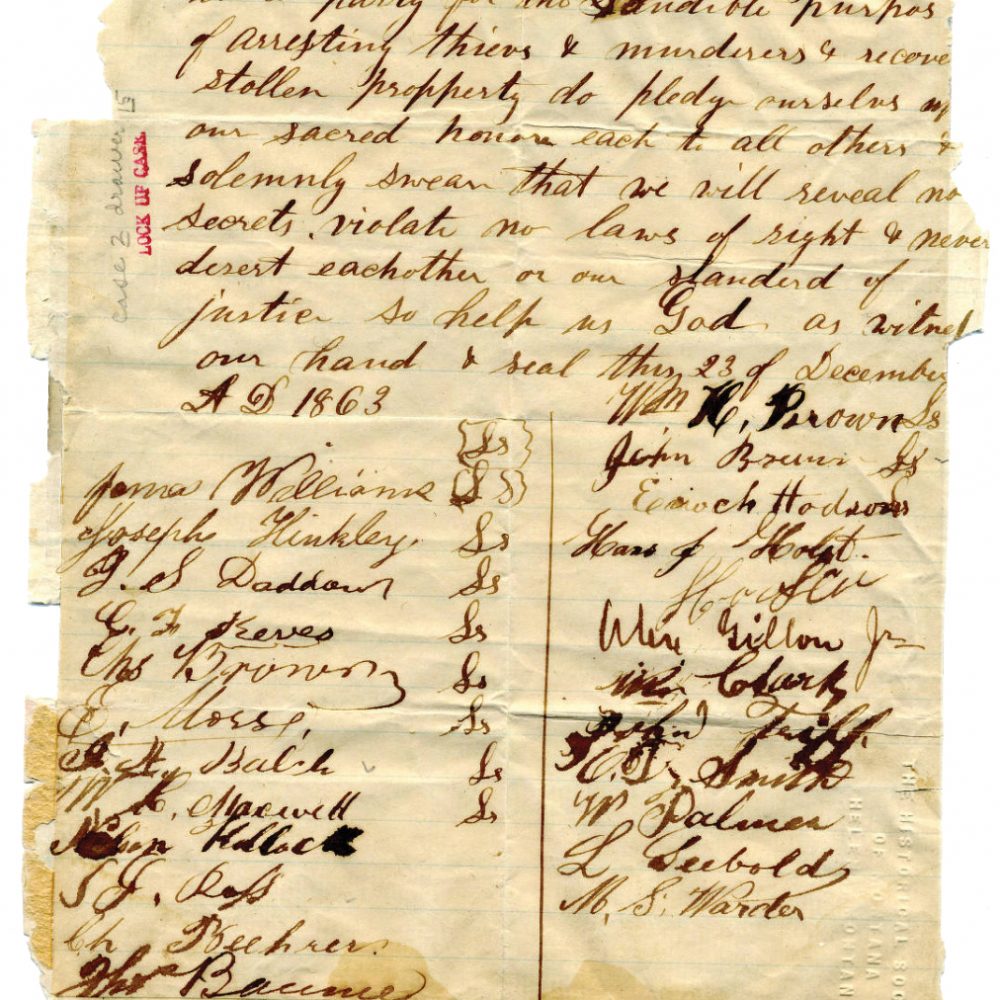 a party for the laudible purpos
of arresting thievs & murderers & recove
stollen propperty do pledge ourselvs up
our sacred honor each to all others &
solemnly swear that we will reveal no
secrets, violate no laws of right & never
desert eachother or our standerd of
justice so help us God as witnes
our hand & seal this 23 of December
A D 1863
{Ls}
James Williams {Ls}
Joseph Hinkley Ls
J. S Daddow Ls
C. F Keyes Ls
Chs Brown Ls
E. Morse, Ls
Balch Ls
W. C. Maxwell Ls
Nelson Kellock
S J. Ross
Ch Beehrer
Thos Baume
Wm H. Brown Ls
John Brown Ls
Enoch Hodson Ls
Hans J Holst.
Alex Gillon Jr
Clark
John Tripp
C. Smith
W Palmer
L Seebold
M. S. Warder
case 2 drawer 15
LOCK UP CASE
THE HISTORICAL SOC
OF MONTANA
HELE MONTAN